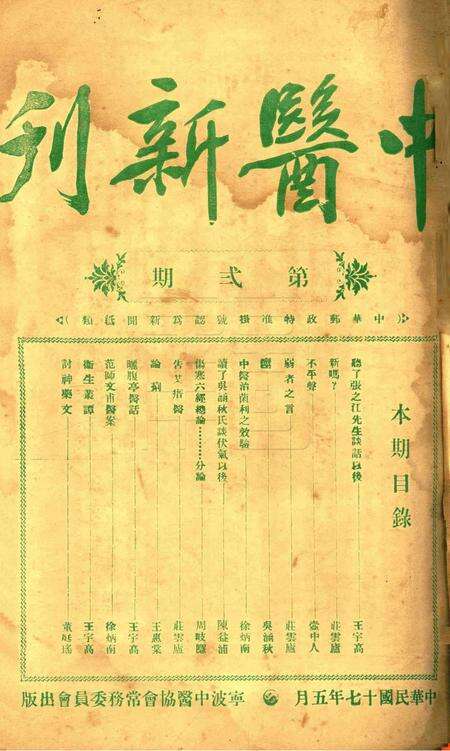 中醫新刊
第弍期
(中華郵政特准掛號認為新聞紙類)
本期目錄
聽了張之江先生談話以後 王宇高
新嗎? 莊雲廬
不平聲 當中人
弱者之言 莊雲廬
吳涵秋
中醫治菌利之效驗 徐炳南
讀了吳涵秋氏談伏氣以後 陳益浦
傷寒六經總論………分論 周岐隱
莊雲廬
論 王蕙棠
曬腹亭醫話 王宇高
范師文甫醫案 徐炳南
衞生叢譚 王宇高
討神藥文 董廷瑤
中華民國十七年五月 寧波中醫協會常務委員會出版